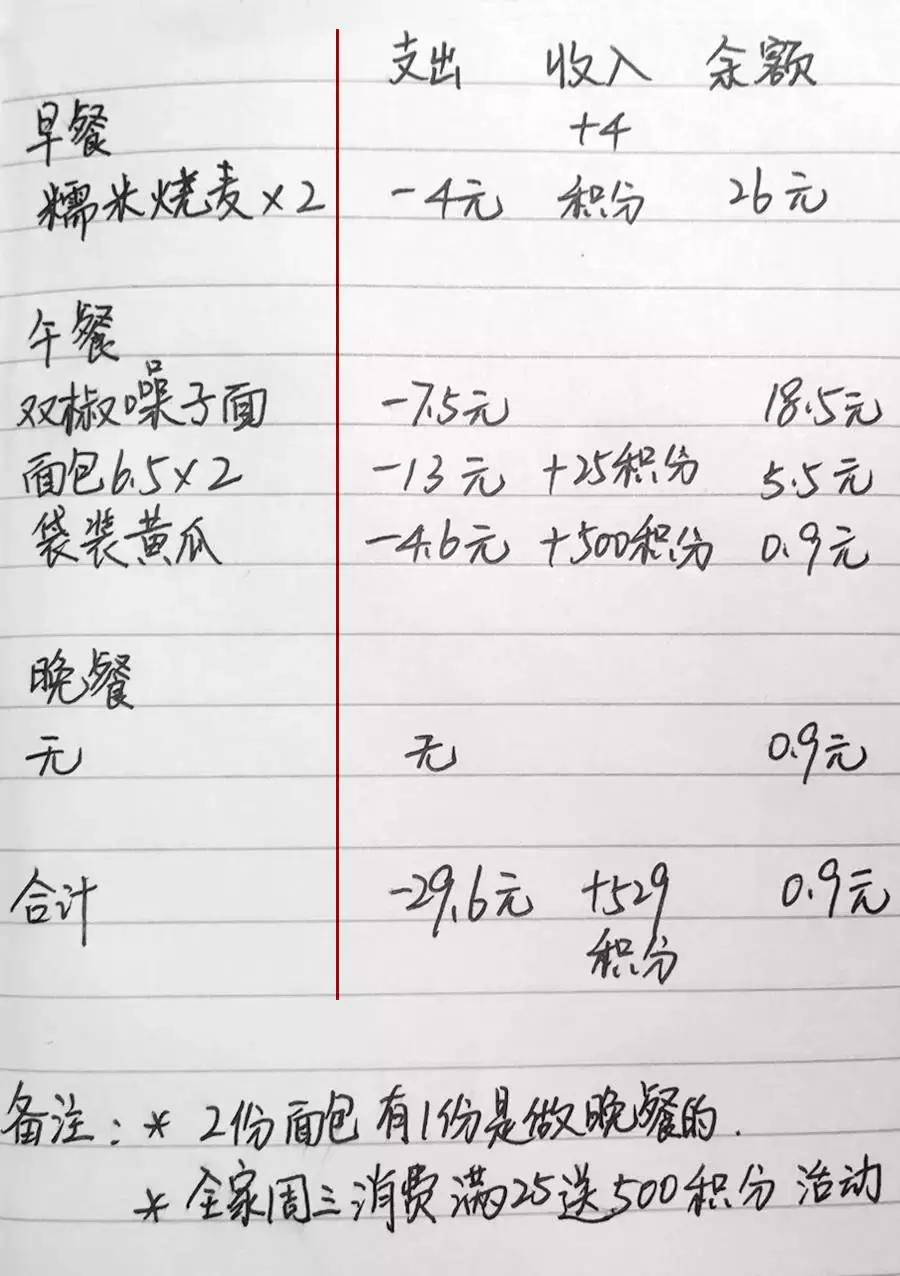 支出 收入 余额
早餐 +4
糯米烧麦×2 -4元 积分 26元
午餐
双椒噪子面 -7.5元 18.5元
面包6.5×2 -13元 +25积分 5.5元
袋装黄瓜 -4.6元 +500积分 0.9元
晚餐
无 无 0.9元
合计 -29.6元 +529 0.9元
积分
备注：* 2份面包有1份是做晚餐的.
* 全家周三消费满25送500积分 活动